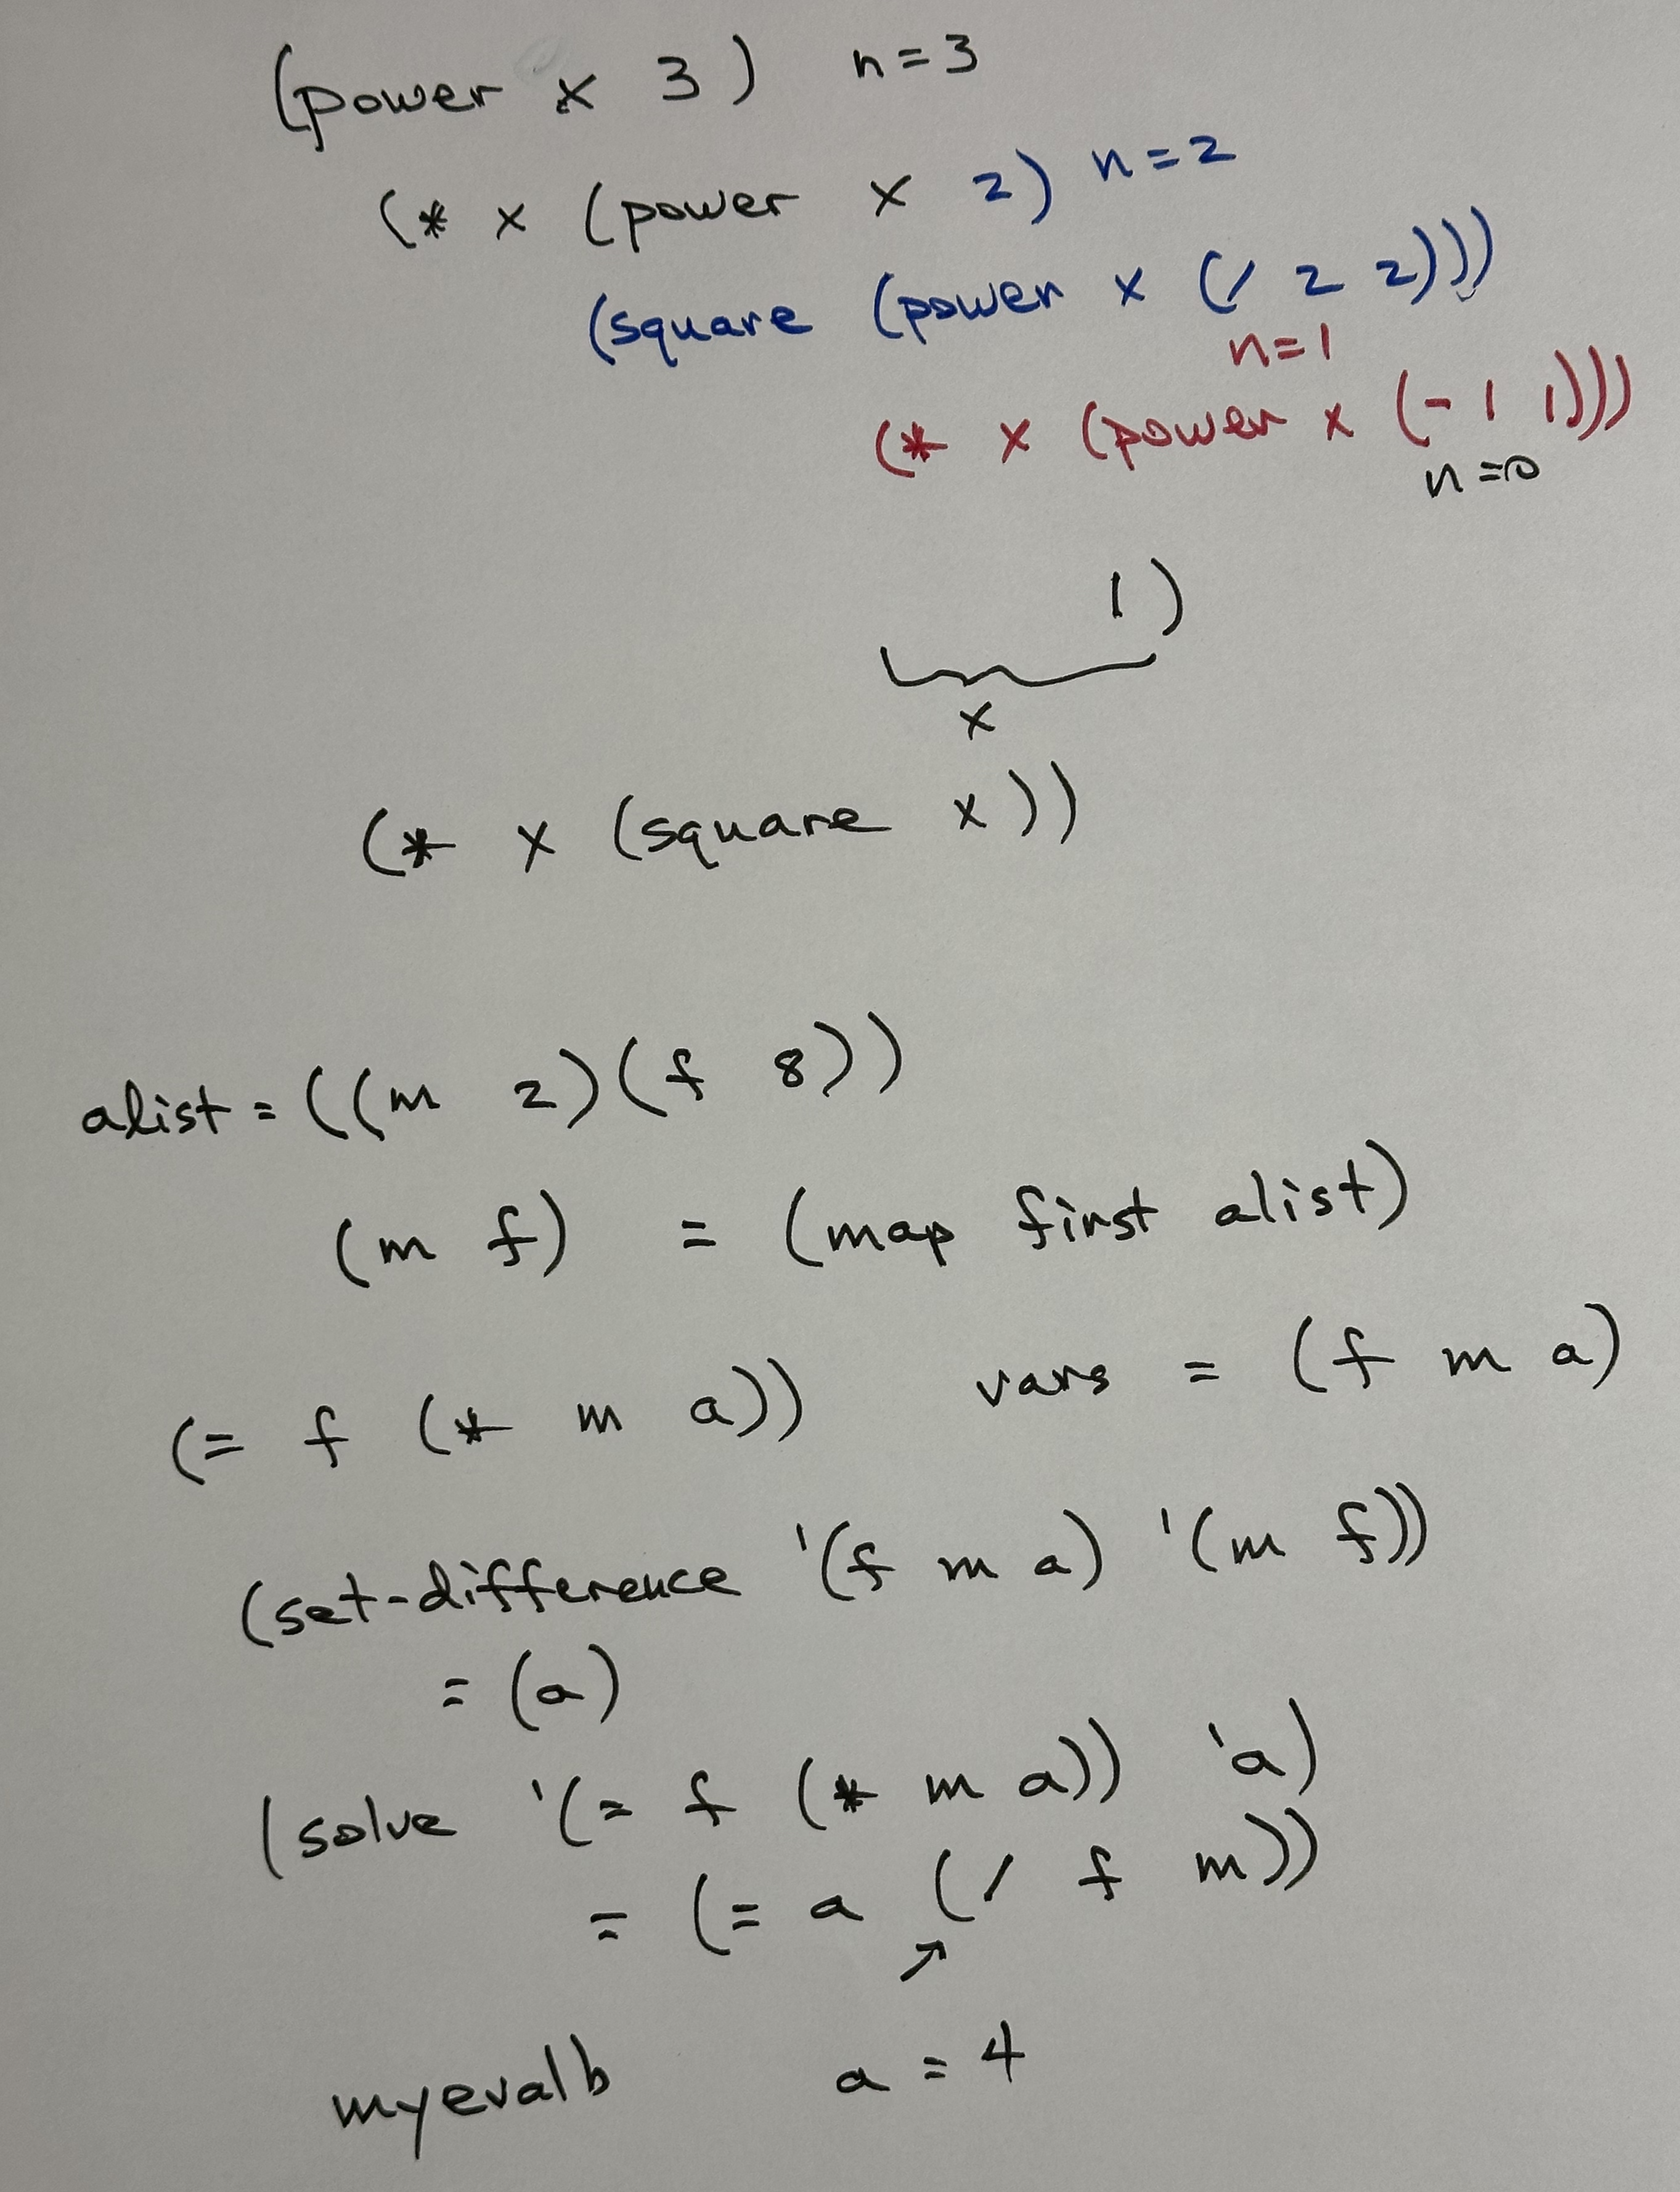 (power x 3) n=3
(* x (power x 2) n=2
(square (power x (/ 2 2)))
n=1
(* x (power x (- 1 1)))
n=0
1)
x
(* x (square x))
alist = ((m 2)(f 8))
(m f) = (map first alist)
(= f (* m a)) vars = (f m a)
(set-difference '(f m a) '(m f))
= (a)
(solve '(= f (* m a)) 'a)
= (= a (/ f m))
myevalb a = 4